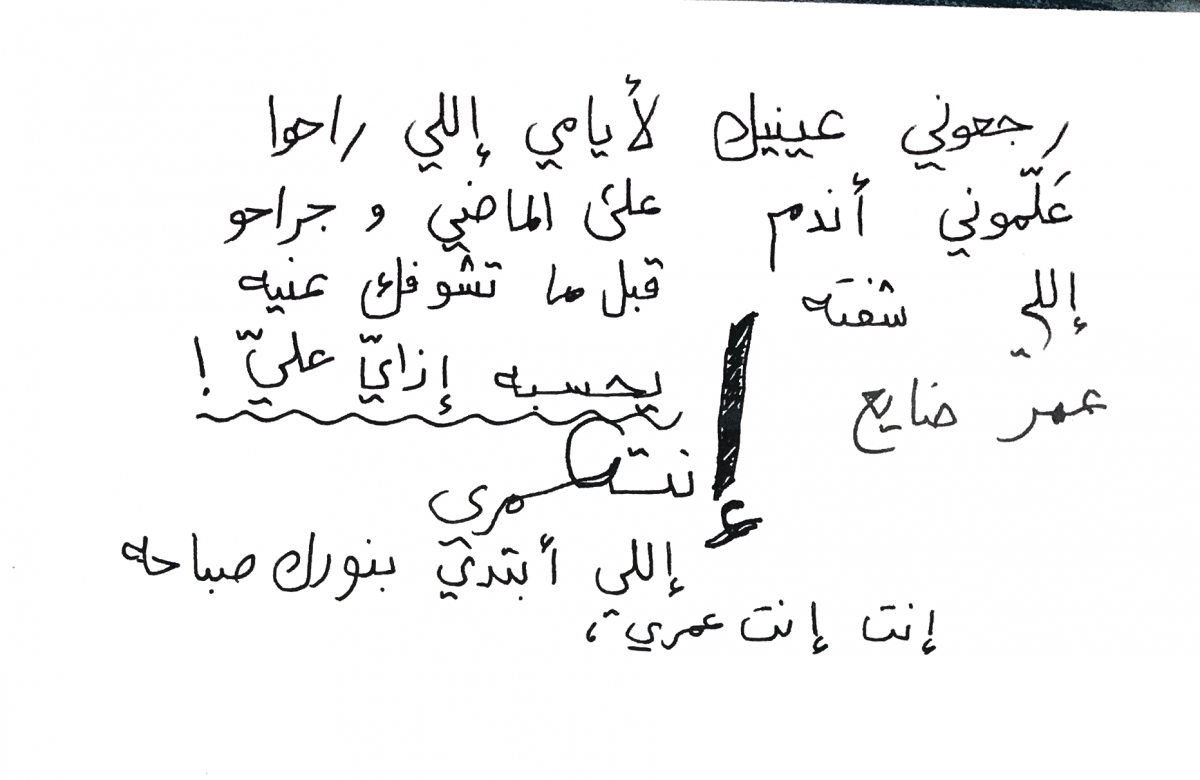 رجعوني عينيك لأيامي إللي راحوا
عَلّموني أندم على الماضي و جراحو
إللي شفته قبل ما تشوفك عنيه
عمر ضايع يحسبه إزايّ عليّ !
إنت عمرى
إللى أبتدي بنورك صباحه
إنت إنت عمري ،